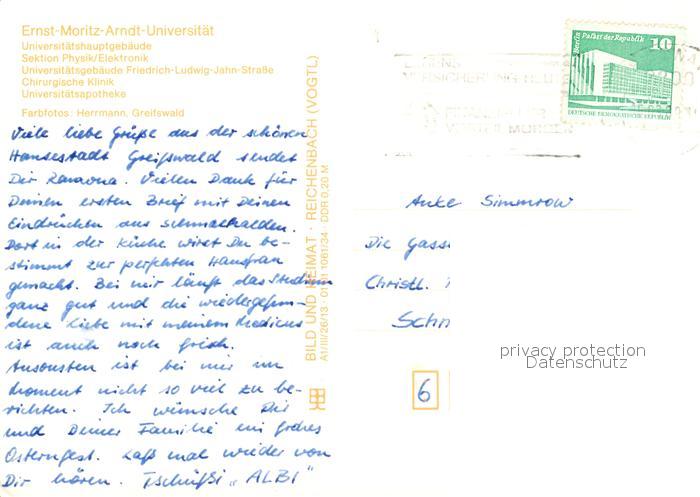 Ernst-Moritz-Arndt-Universität
Universitätshauptgebäude
Sektion Physik/Elektronik
Universitätsgebäude Friedrich-Ludwig-Jahn-Straße
Chirurgische Klinik
Universitätsapotheke
Farbfotos: Herrmann, Greifswald
Viele liebe Grüße aus der schönen
Hansestadt Greifswald sendet
Dir Ramona. Vielen Dank für
Deinen ersten Brief mit Deinen
Eindrücken aus Schmalkalden.
Dort in der Küche wirst Du be-
stimmt zur perfekten Hausfrau
gemacht. Bei mir läuft das Studium
ganz gut und die wiedergefun-
dene Liebe mit meinem Medicus
ist auch noch frisch.
Ansonsten ist bei mir im
Moment nicht so viel zu be-
richten. Ich wünsche Dir
und Deiner Familie ein frohes
Osternfest. Laß mal wieder von
Dir hören. Tschüßi "ALBI"
BILD UND HEIMAT · REICHENBACH (VOGTL)
A1/III/26/13 · 01 01 1061/34 · DDR 0,20 M
Berlin Palast der Republik
10
DEUTSCHE DEMOKRATISCHE REPUBLIK
Anke Simmrow
Die Gass
Christl.
Schm
6
privacy protection
Datenschutz